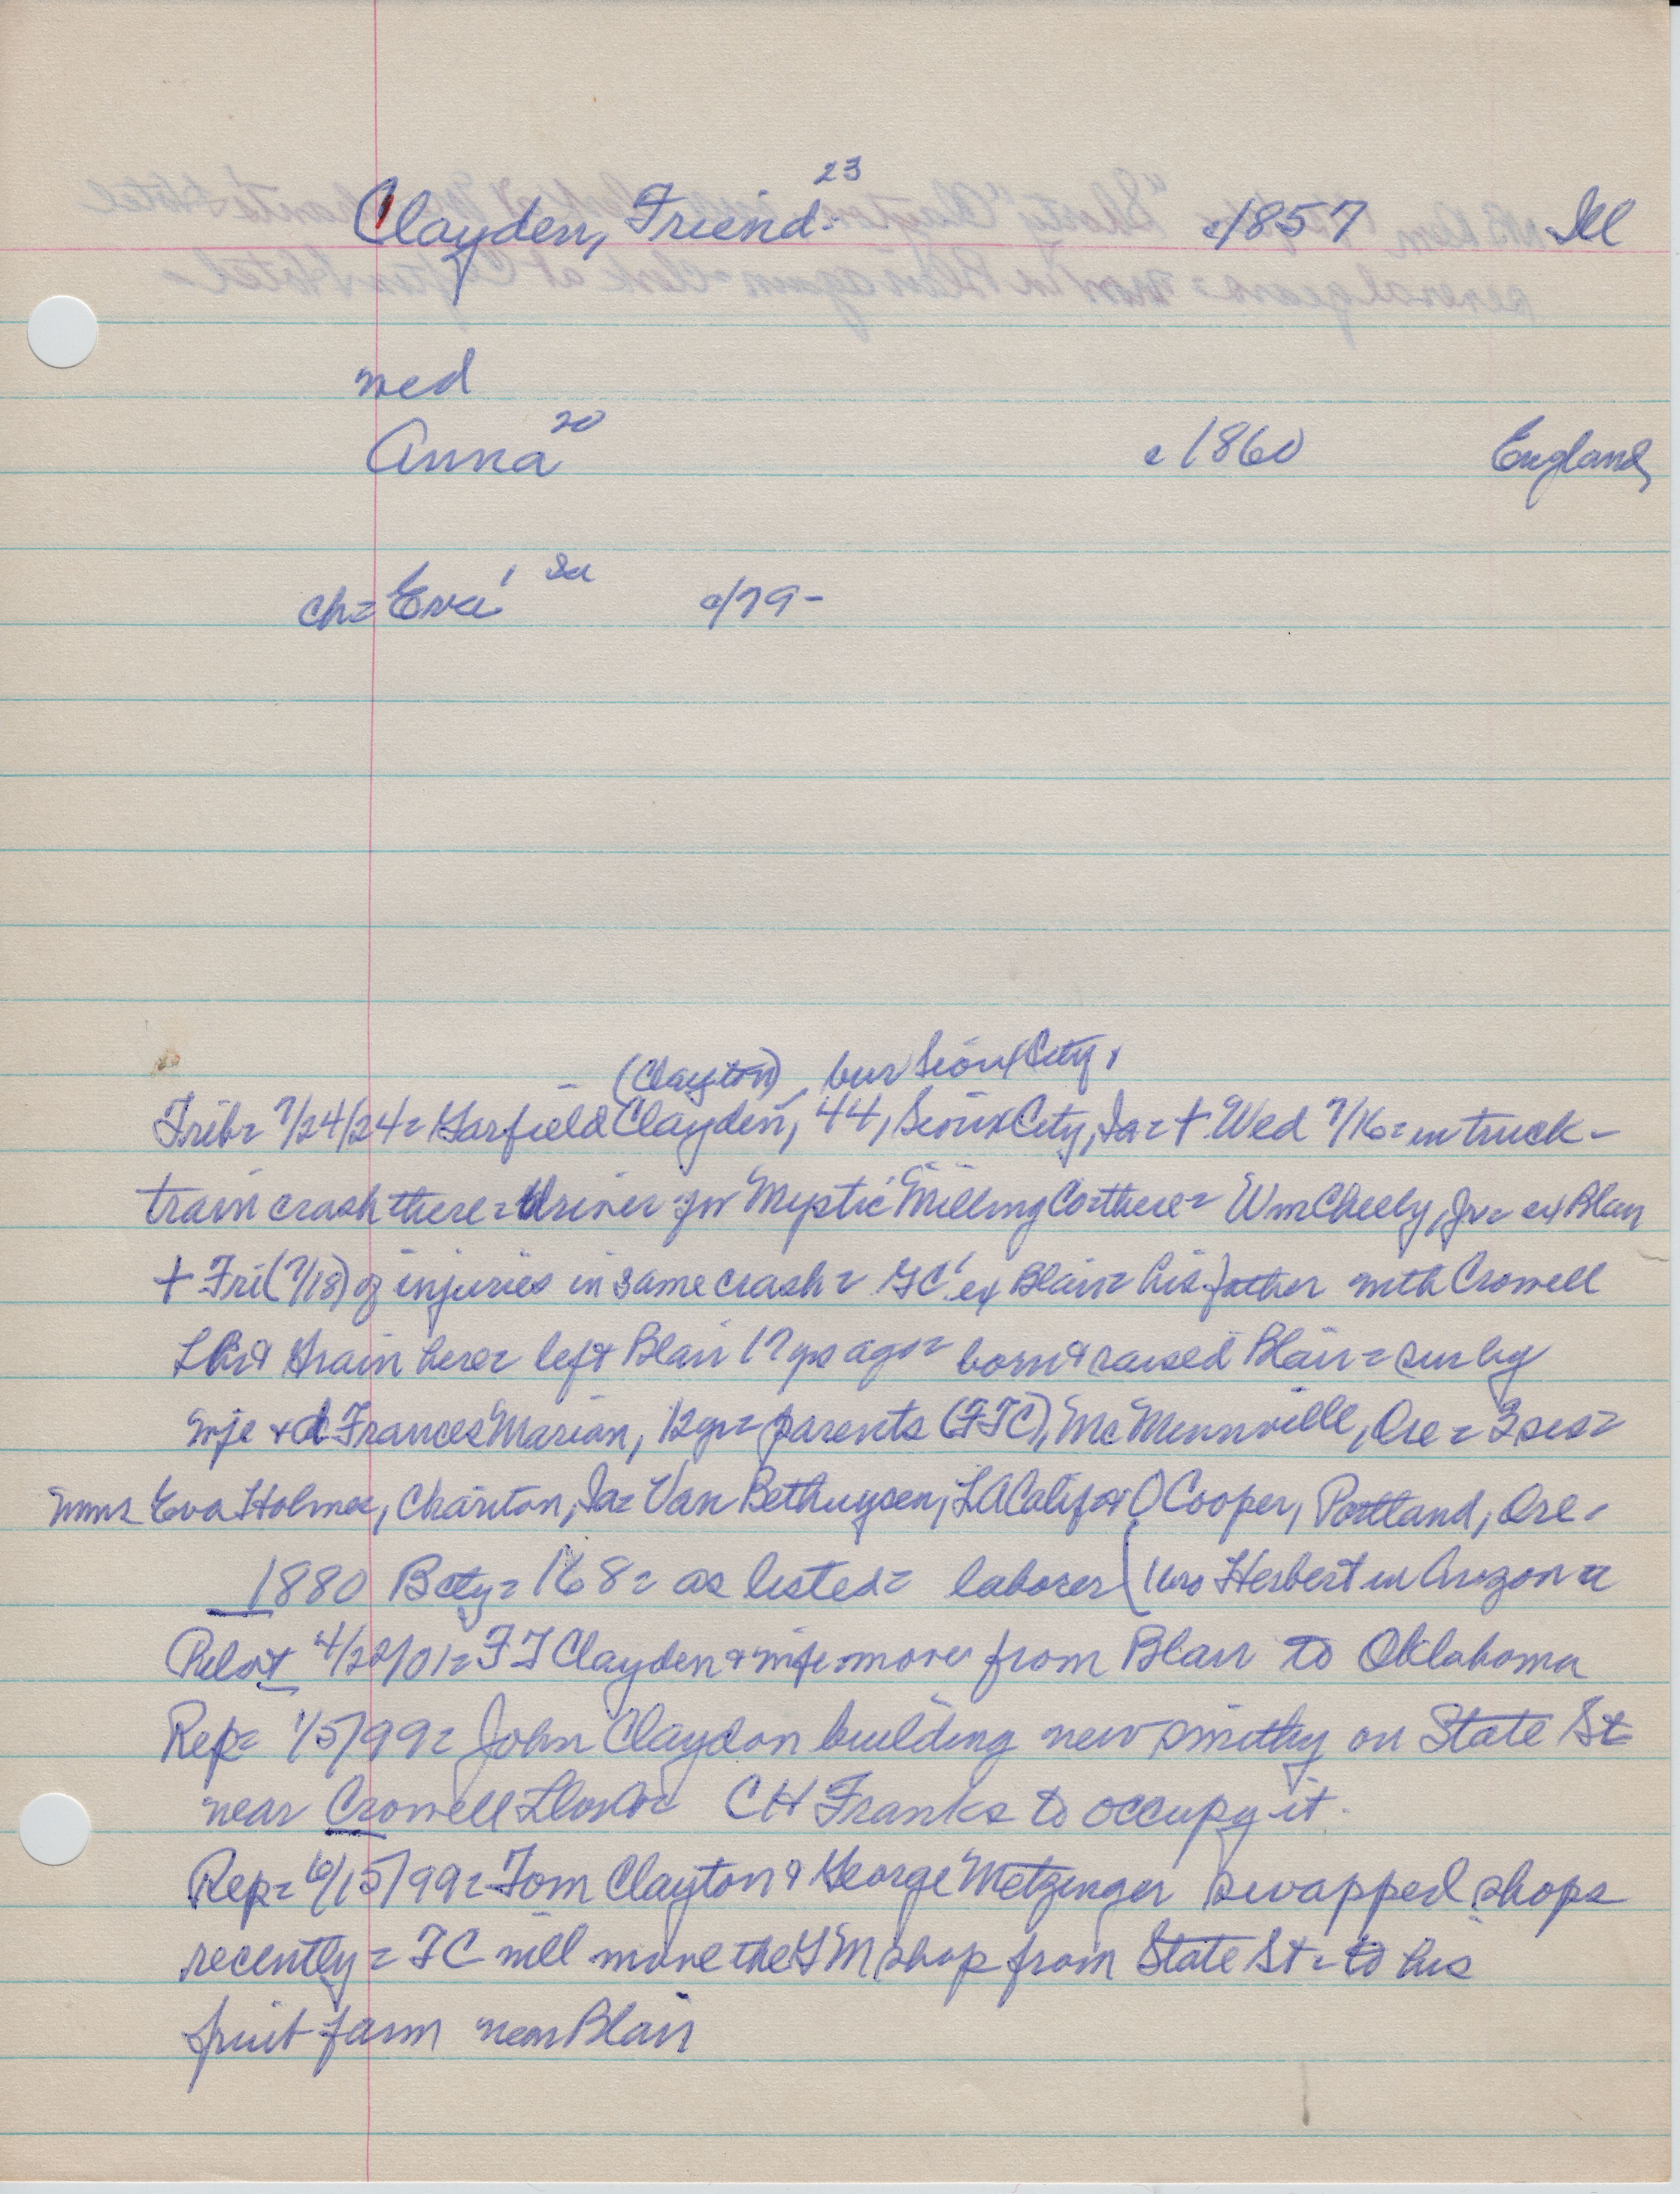 Clayden, Friend = 23 c1857 Ill
med
Anna 20 c1860 England
ch= Eva 1 Ia c/79-
(Clayton) bur Sioux City,
Trib= 7/24/24= Garfield Clayden, 44, Sioux City, Ia= + Wed 7/16= in truck-
train crash there= driver for Mystic Milling Co there= Wm Cheely, Jr= ex Blair
+ Fri (7/18) of injuries in same crash= GC ex Blair= his father with Crowell
Lbr & Grain here= left Blair 17 yrs ago= born & raised Blair= sur by
wife & d Frances Marian, 12 yr= parents (FTC), McMinnville, Ore= 3 sis=
mms Eva Holmes, Chariton, Ia= Van Bethuysen, LA Calif & O Cooper, Portland, Ore=
1880 Bcty= 168= as listed= laborer (bro Herbert in Arizona
Pilot 4/20/01= FT Clayden & wife move from Blair to Oklahoma
Rep= 1/5/99= John Claydon building new smithy on State St
near Crowell CH Franks to occupy it.
Rep= 6/15/99= Tom Clayton & George Metzinger swapped shops
recently= TC will move the GM shop from State St= to his
fruit farm near Blair